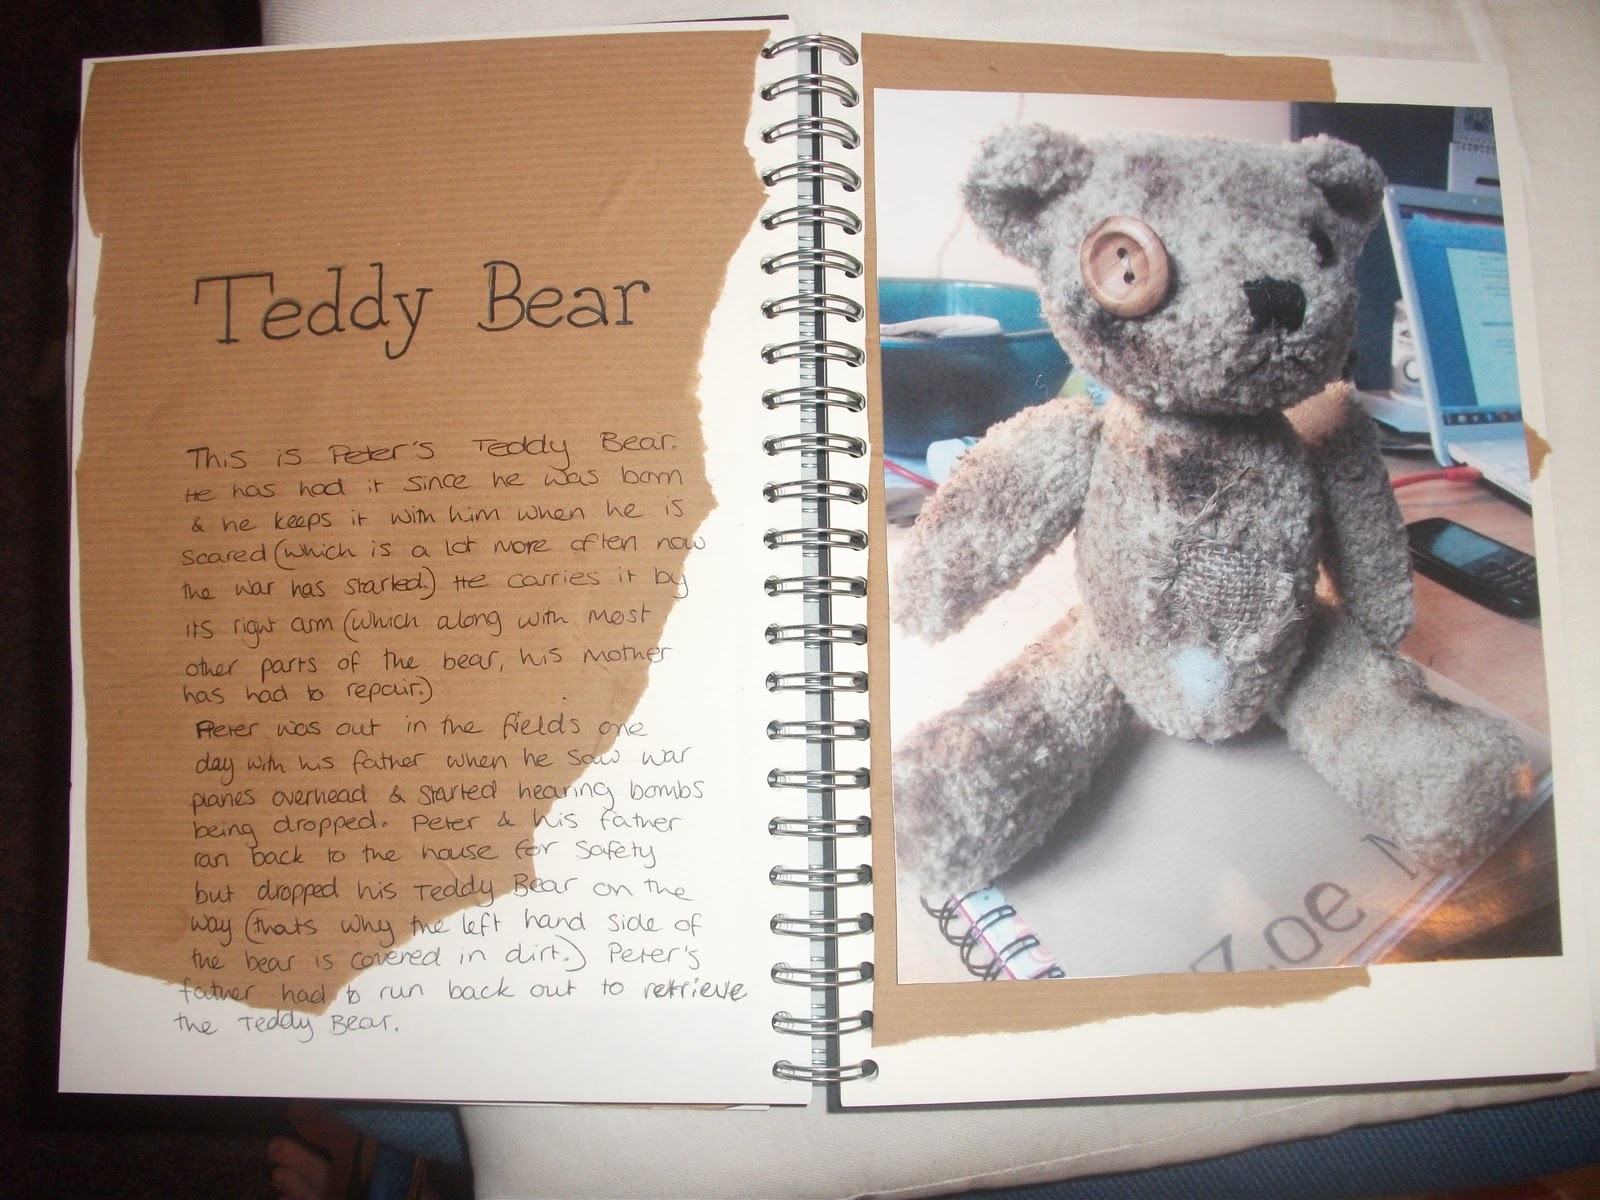 Teddy Bear
This is Peter's Teddy Bear.
He has had it since he was born
& he keeps it with him when he is
scared (which is a lot more often now
the war has started.) He carries it by
its right arm (which along with most
other parts of the bear, his mother
has had to repair.)
Peter was out in the fields one
day with his father when he saw war
planes overhead & started hearing bombs
being dropped. Peter & his father
ran back to the house for safety
but dropped his Teddy Bear on the
way (thats why the left hand side of
the bear is covered in dirt.) Peter's
father had to run back out to retrieve
the Teddy Bear.
Zoe M